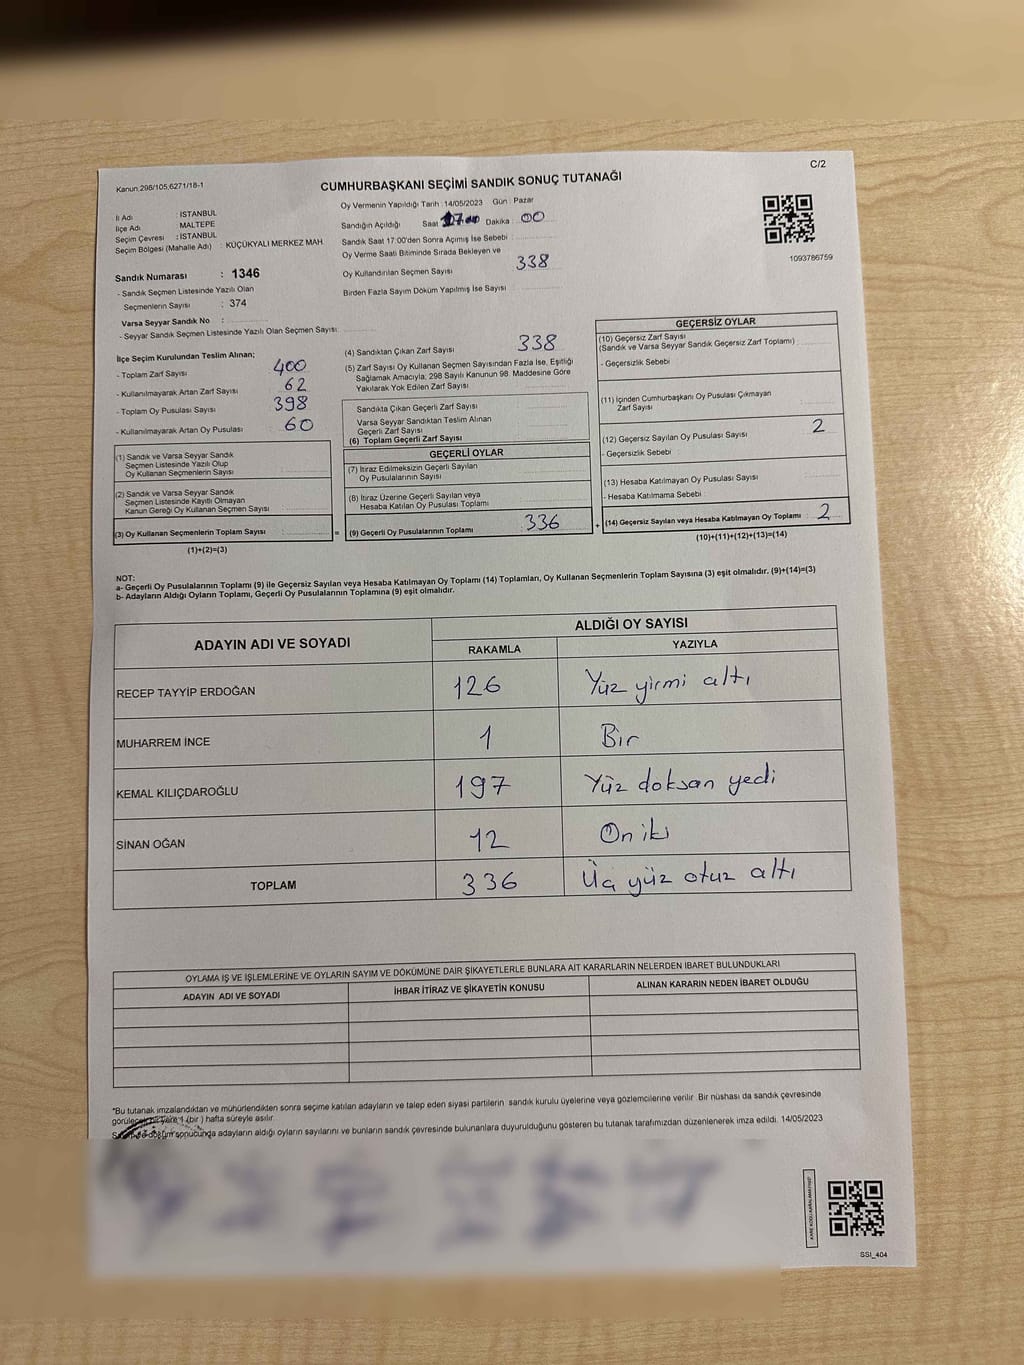 C/2
Kanun.298/105,6271/18-1
CUMHURBAŞKANI SEÇİMİ SANDIK SONUÇ TUTANAĞI
İl Adı : İSTANBUL
İlçe Adı : MALTEPE
Seçim Çevresi : İSTANBUL
Seçim Bölgesi (Mahalle Adı) : KÜÇÜKYALI MERKEZ MAH.
Sandık Numarası : 1346
- Sandık Seçmen Listesinde Yazılı Olan
Seçmenlerin Sayısı : 374
Varsa Seyyar Sandık No :
- Seyyar Sandık Seçmen Listesinde Yazılı Olan Seçmen Sayısı:
Oy Vermenin Yapıldığı Tarih : 14/05/2023 Gün : Pazar
Sandığın Açıldığı Saat 17 Dakika : 00
Sandık Saat 17:00'den Sonra Açımış İse Sebebi :
Oy Verme Saati Bitiminde Sırada Bekleyen ve
Oy Kullandırılan Seçmen Sayısı : 338
Birden Fazla Sayım Döküm Yapılmış İse Sayısı :
1093786759
İlçe Seçim Kurulundan Teslim Alınan;
- Toplam Zarf Sayısı : 400
- Kullanılmayarak Artan Zarf Sayısı : 62
- Toplam Oy Pusulası Sayısı : 398
- Kullanılmayarak Artan Oy Pusulası : 60
(1) Sandık ve Varsa Seyyar Sandık
Seçmen Listesinde Yazılı Olup
Oy Kullanan Seçmenlerin Sayısı :
(2) Sandık ve Varsa Seyyar Sandık
Seçmen Listesinde Kayıtlı Olmayan
Kanun Gereği Oy Kullanan Seçmen Sayısı :
(3) Oy Kullanan Seçmenlerin Toplam Sayısı :
(1)+(2)=(3)
(4) Sandıktan Çıkan Zarf Sayısı : 338
(5) Zarf Sayısı Oy Kullanan Seçmen Sayısından Fazla İse, Eşitliği
Sağlamak Amacıyla, 298 Sayılı Kanunun 98. Maddesine Göre
Yakılarak Yok Edilen Zarf Sayısı :
Sandıkta Çıkan Geçerli Zarf Sayısı :
Varsa Seyyar Sandıktan Teslim Alınan
Geçerli Zarf Sayısı :
(6) Toplam Geçerli Zarf Sayısı :
=
GEÇERLİ OYLAR
(7) İtiraz Edilmeksizin Geçerli Sayılan
Oy Pusulalarının Sayısı :
(8) İtiraz Üzerine Geçerli Sayılan veya
Hesaba Katılan Oy Pusulası Toplamı :
(9) Geçerli Oy Pusulalarının Toplamı : 336
+
GEÇERSİZ OYLAR
(10) Geçersiz Zarf Sayısı
(Sandık ve Varsa Seyyar Sandık Geçersiz Zarf Toplamı) :
- Geçersizlik Sebebi
(11) İçinden Cumhurbaşkanı Oy Pusulası Çıkmayan
Zarf Sayısı :
(12) Geçersiz Sayılan Oy Pusulası Sayısı : 2
- Geçersizlik Sebebi
(13) Hesaba Katılmayan Oy Pusulası Sayısı :
- Hesaba Katılmama Sebebi
(14) Geçersiz Sayılan veya Hesaba Katılmayan Oy Toplamı : 2
(10)+(11)+(12)+(13)=(14)
NOT:
a- Geçerli Oy Pusulalarının Toplamı (9) ile Geçersiz Sayılan veya Hesaba Katılmayan Oy Toplamı (14) Toplamları, Oy Kullanan Seçmenlerin Toplam Sayısına (3) eşit olmalıdır. (9)+(14)=(3)
b- Adayların Aldığı Oyların Toplamı, Geçerli Oy Pusulalarının Toplamına (9) eşit olmalıdır.
ADAYIN ADI VE SOYADI
ALDIĞI OY SAYISI
RAKAMLA YAZIYLA
RECEP TAYYİP ERDOĞAN 126 Yüz yirmi altı
MUHARREM İNCE 1 Bir
KEMAL KILIÇDAROĞLU 197 Yüz doksan yedi
SİNAN OĞAN 12 On iki
TOPLAM 336 Üç yüz otuz altı
OYLAMA İŞ VE İŞLEMLERİNE VE OYLARIN SAYIM VE DÖKÜMÜNE DAİR ŞİKAYETLERLE BUNLARA AİT KARARLARIN NELERDEN İBARET BULUNDUKLARI
ADAYIN ADI VE SOYADI İHBAR İTİRAZ VE ŞİKAYETİN KONUSU ALINAN KARARIN NEDEN İBARET OLDUĞU
*Bu tutanak imzalandıktan ve mühürlendikten sonra seçime katılan adayların ve talep eden siyasi partilerin sandık kurulu üyelerine veya gözlemcilerine verilir. Bir nüshası da sandık çevresinde
görülecek bir yere 1 (bir ) hafta süreyle asılır.
sonucunda adayların aldığı oyların sayılarını ve bunların sandık çevresinde bulunanlara duyurulduğunu gösteren bu tutanak tarafımızdan düzenlenerek imza edildi. 14/05/2023
SSI_404